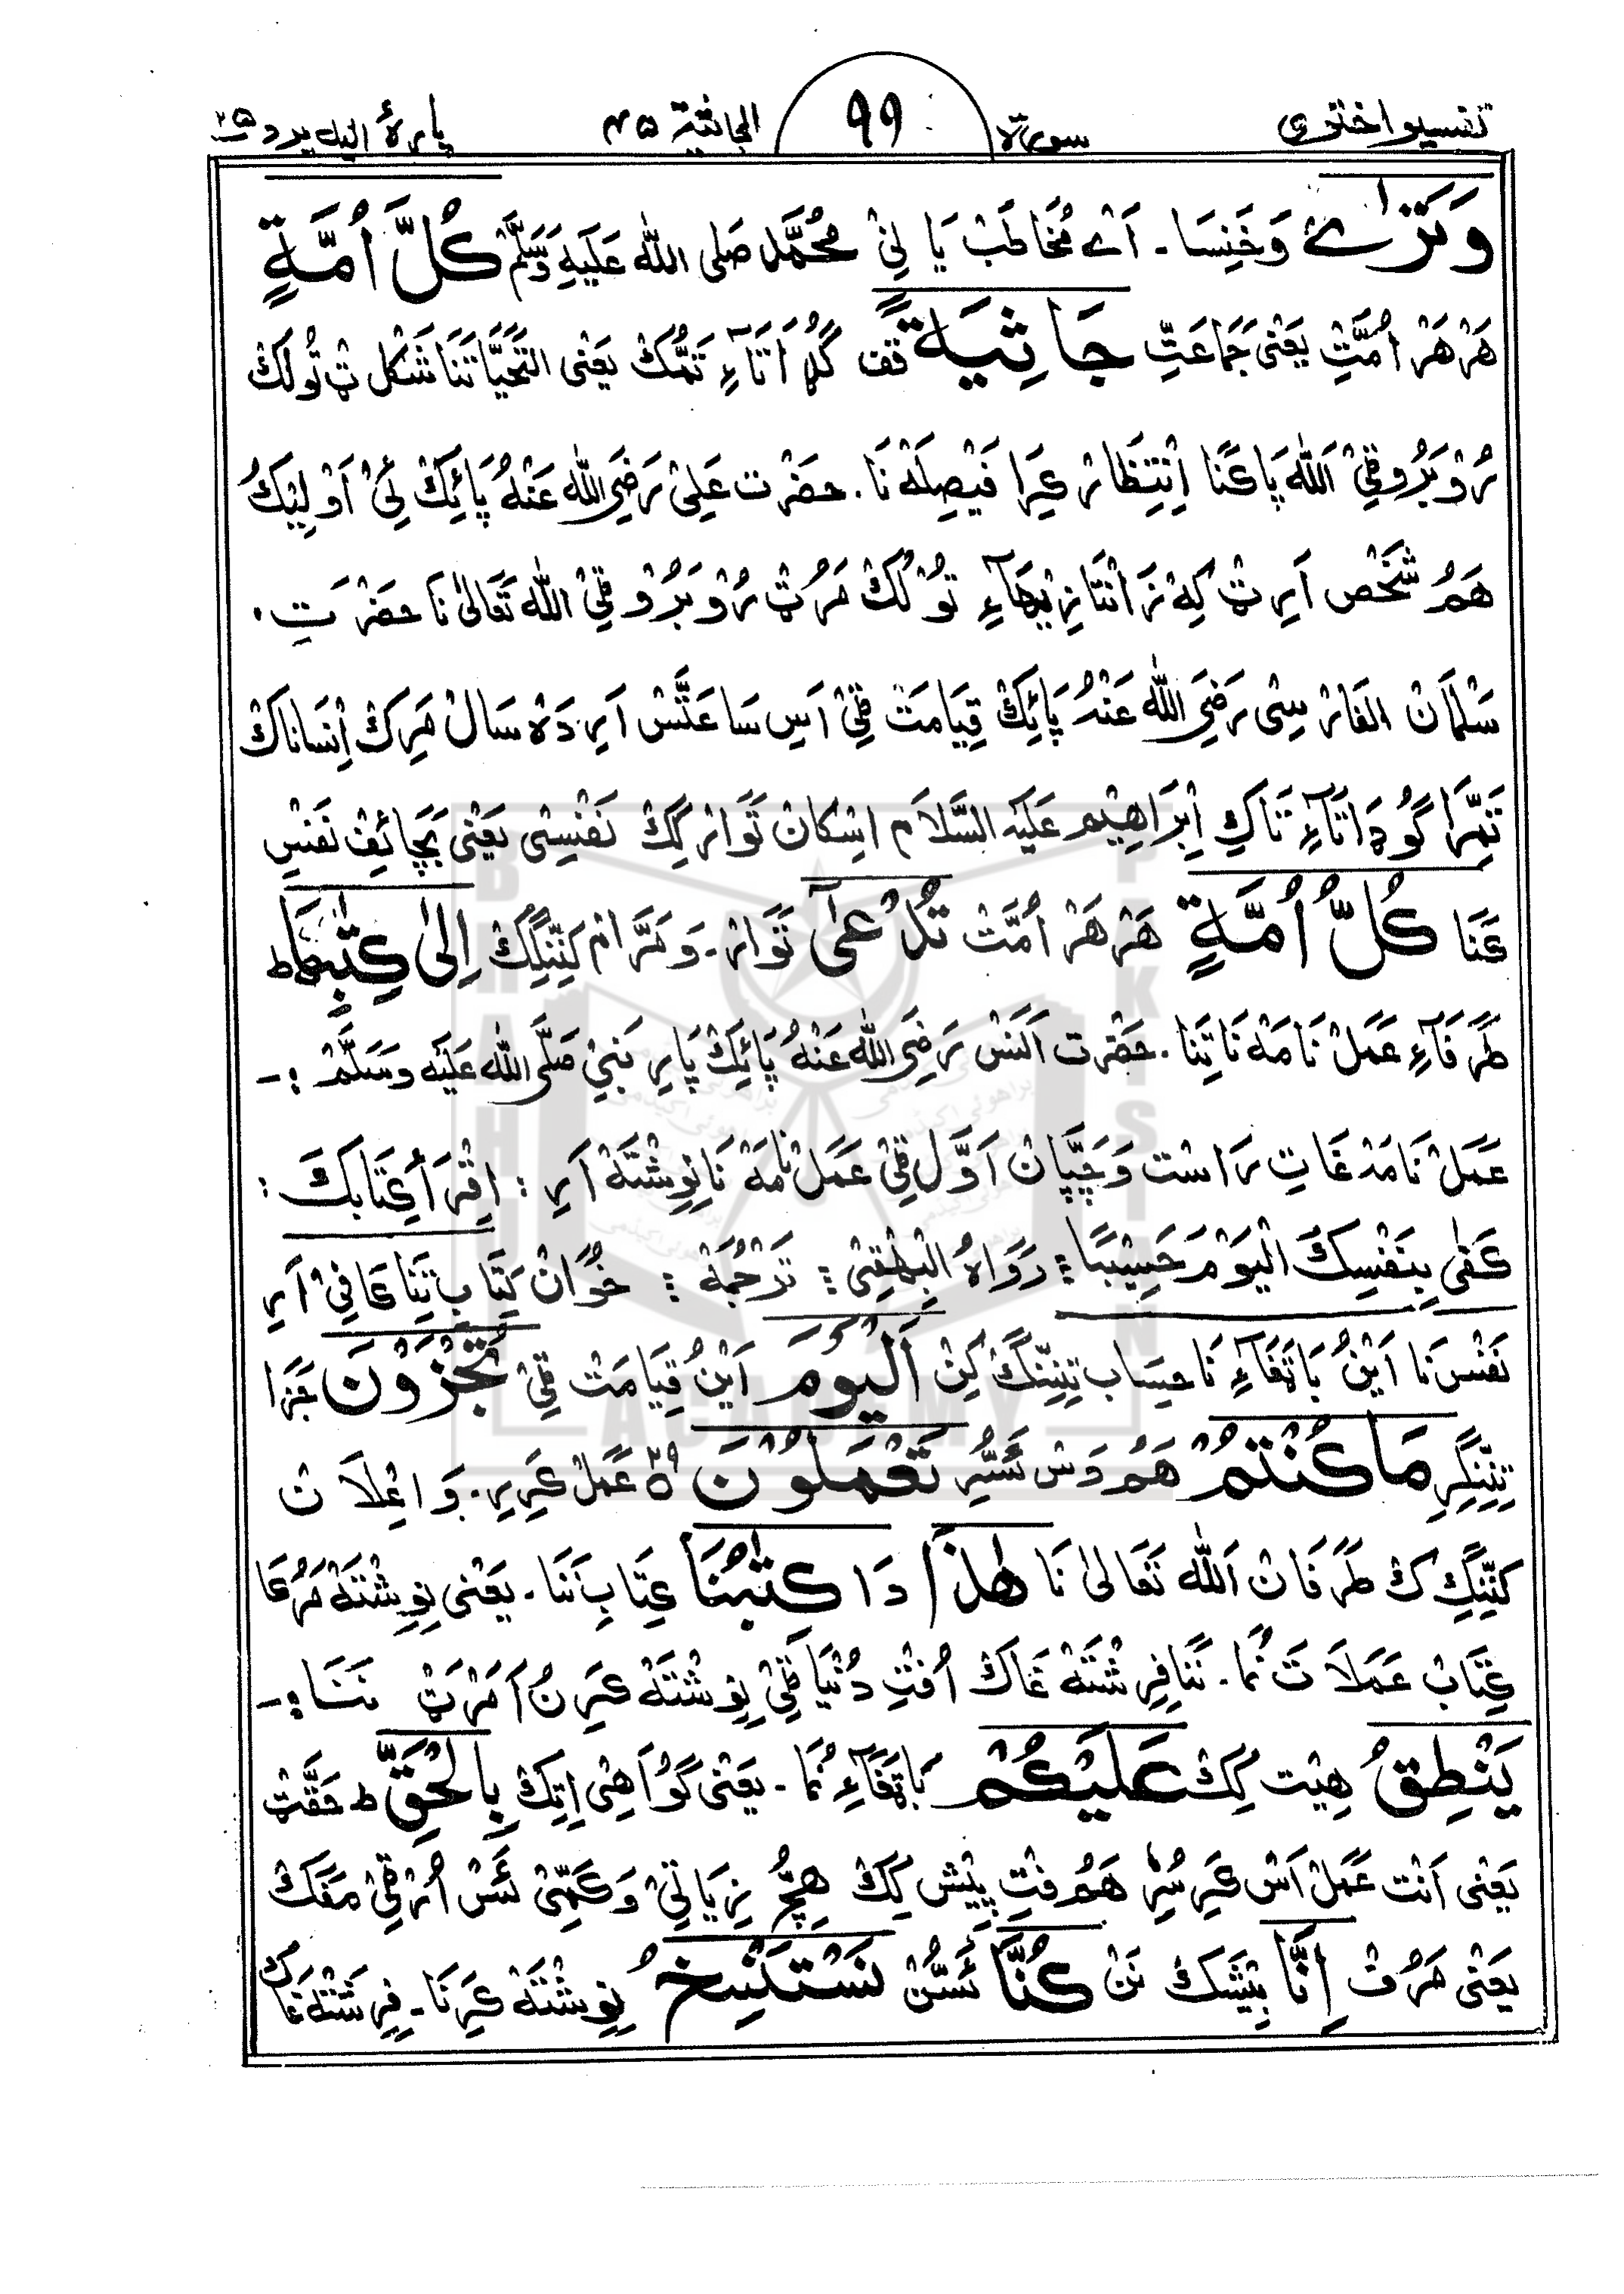 تفسیر اختری سورة ۹۹ الجاثیة ۴۵ پارۂ الیہ یرد ۲۵
وَتَرٰے وَخَنِسَا۔ اَے مُخَاطَبْ یَا نِیْ مُحَمَّد صَلی اللّٰہ عَلَیہِ وَسَلَّمْ كُلَّ اُمَّةٍ
هَرْ هَرْ اُمَّتْ یَعْنِی جَمَاعَتِ جَاثِيَةً قف كُڈَاتَاءِ تَمُّكْ یَعْنِی التَّحِیَّاتَنَا شَکْل ٹ تُولُكْ
رُوْبَرُو ٹِیْ اَللّٰہ پَاکَنَا اِنْتِظَار کِرَا فَیْصِلَہْ نَا۔ حضْرت عَلِیْ رَضِیَ اللّٰہ عَنْہُ پَائِكْ نِیْ اَوْلِیکُ
هَمُ شَخْص اَرِٹ کِہْ زَانْتَا زِیْہَآءِ تُوْلُكْ مَرُٹ رُوْبَرُوْ ٹِیْ اللّٰہ تَعَالیٰ نَا حضْرَتِ۔
سَلْمَانْ الفَارْسِی رَضِیَ اللّٰہ عَنْہُ پَائِكْ قِیَامَتْ ٹِیْ اَسِ سَاعَتَّسْ اَرِ دَہْ سَالْ مَرِكْ اِنْسَانَاكْ
تَمِّرَا گُوڈَاتَآءِ تَاكِ اِبْرَاهِیْم عَلَیہِ السَّلَام اِسْکَانْ تَوَار كِكْ نَفْسِی یَعْنِی بَچَائِفْ نَفْسِ
کَنَا كُلُّ اُمَّةٍ هَرْ هَرْ اُمَّتْ تُدْعٰىٓ تَوَارْ۔ وَمَرَّامْ کَنِّنِگِكْ اِلٰى كِتٰبِهَا ط
طَرَفَآءِ عَمَلْ نَامَہْ نَاتَنَا۔ حَضْرت اَنَسْ رَضِیَ اللّٰہ عَنْہُ پَائِكْ پَارِ نَبِیْ صَلَّی اللّٰہ عَلَیْہ وسَلَّمْ :۔
عَمَلْ نَامَہْ غَاتِ رَاسْت وَچَپَّانْ اَوَّل ٹِیْ عَمَلْ نَامَہْ نَا نِوِشْتَہْ اَرِ : اِقْرَأْ کِتَابَكَ :
کَفٰی بِنَفْسِكَ الْیَوْمَ حَسِیْبًا : رَوَاہُ الْبَیْهَقِیْ : تَرْجُمَہْ : خُوَانْ کِتَابِ تِنَا کَافِیْ اَرِ
نَفْسْ نَا اَیْنُ بَاتَغَاءِ نَا حِسَاب تِنِنِّگْ کِنْ اَلْيَوْمَ اَیْنُ قِیَامَتْ ٹِیْ تُجْزَوْنَ جَزَا
تِنِنِّگِرِ مَا كُنْتُمْ هَمُ دَسْ نُمَسُّرِ تَعْمَلُوْنَ ۲۸ عَمَلْ کَرِیرِ۔ وَاعْلَانْ
کَنِّنِگِكْ طَرَفَانْ اَللّٰہ تَعَالیٰ نَا هٰذَا دَا كِتٰبُنَا کِتَابِ نَنَا۔ یَعْنِی نِوِشْتَہْ مَرُكَا
کِتَابْ عَمَلَاتَ نُمَا۔ نَنَا فِرِشْتَہْ غَاكْ اُفْتِ دُنْیَا ٹِیْ نِوِشْتَہْ کَرِنُ اَمْرَٹ نَنَا :۔
يَنْطِقُ هِیْت كِكْ عَلَيْكُمْ بَاتَغَآءِ نُمَا۔ یَعْنِی گُوَاهِی اِتِكْ بِالْحَقِّ ط حَقَّتْ
یَعْنِی اَنْت عَمَلْ اَسْ کَرِسُرِ هَمُفْتِ پِیْش كِكْ هِچُّ زِیَاتِیْ وَکَمِّیْ ئَسْ اُرْٹِیْ مَفَكْ
یَعْنِی مَرُفْ اِنَّا بِیْشَكْ نَنْ كُنَّا ئَسُّنْ نَسْتَنْسِخُ نِوِشْتَہْ کَرِنَا۔ فِرِشْتَہْ غَاكْ
BRAHUI
ACADEMY
PAKISTAN